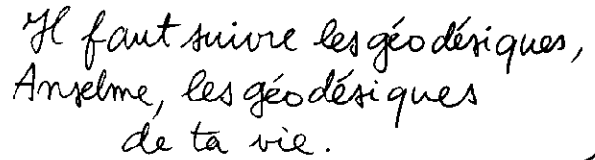 Il faut suivre les géodésiques,
Anselme, les géodésiques
de ta vie.